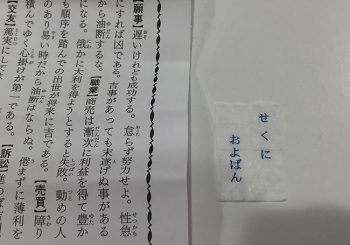 せくに
およばん
【願事】遅いけれども成功する。怠らず努力せよ。性急
にすれば凶である。吉事があっても末遂げぬ事がある
から油断するな。【職業】商売は漸次に利益を得て豊か
になる。俄かに大利を得ようとすると失敗。勤めの人
も順序を踏んでの出世が将来に吉である。【売買】障り
のあり易い時だから油断はならぬ。倦まずに薄利を
積んでゆく心掛けが第一である。【訴訟】進めば
【文友】篤実にして